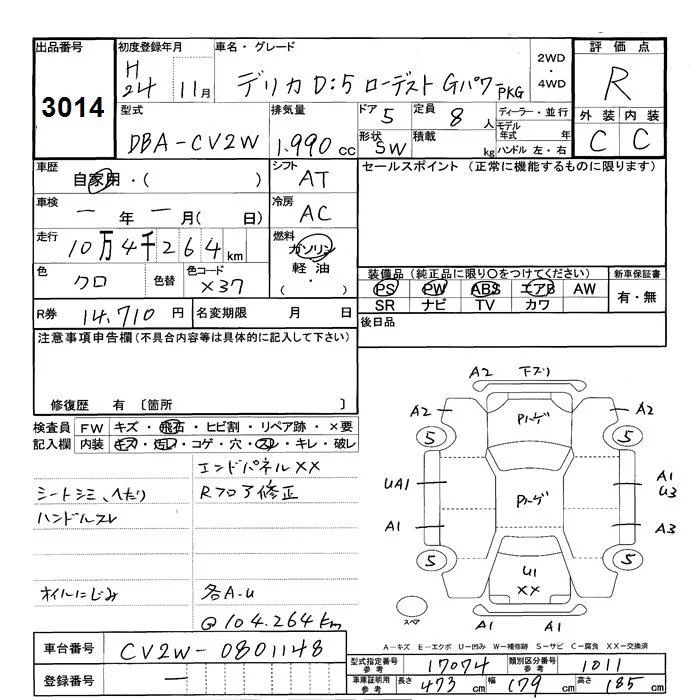 出品番号
3014
初度登録年月
H
24 11月
車名・グレード
デリカD:5 ローデスト Gパワー PKG
2WD
・
4WD
評価点
R
外装 内装
C C
型式
DBA-CV2W
排気量
1.990 cc
ドア 5
定員 8 人
形状 SW
積載 kg
ディーラー・並行
モデル年式 年
ハンドル 左・右
車歴
自家用・( )
シフト
AT
セールスポイント(正常に機能するものに限ります)
車検
一 年 一 月( 日)
冷房
AC
走行
10万4千264km
燃料
ガソリン
軽油
( ・ )
色
クロ
色替
色コード
X37
装備品(純正品に限り○をつけてください)
新車保証書
PS PW ABS エアB AW
SR ナビ TV カワ
有・無
R券 14,710 円
名変期限 月 日
後日品
注意事項申告欄(不具合内容等は具体的に記入して下さい)
修復歴 有 〔箇所 〕
検査員
記入欄
FW キズ・飛石・ヒビ割・リペア跡・×要
内装 キズ・汚レ・コゲ・穴・スレ・キレ・破レ
エンドパネルXX
シートシミ、へたり
Rフロア修正
ハンドルスレ
オイルにじみ
各A-U
@104.264km
A2 下ズリ
A2 A2
Pハーゲ
5 5
UA1
A1
U3
Pハーゲ
A1 A3
5 5
U1
XX
スペア
A1 A1
A-キズ E-エクボ U-凹み W-補修跡 S-サビ C-腐食 XX-交換済
車台番号 CV2W-0801148
登録番号 一
型式指定番号
参考
17074
類別区分番号
参考
1011
車庫証明用
参考
長さ 473 cm
幅 179 cm
高さ 185 cm